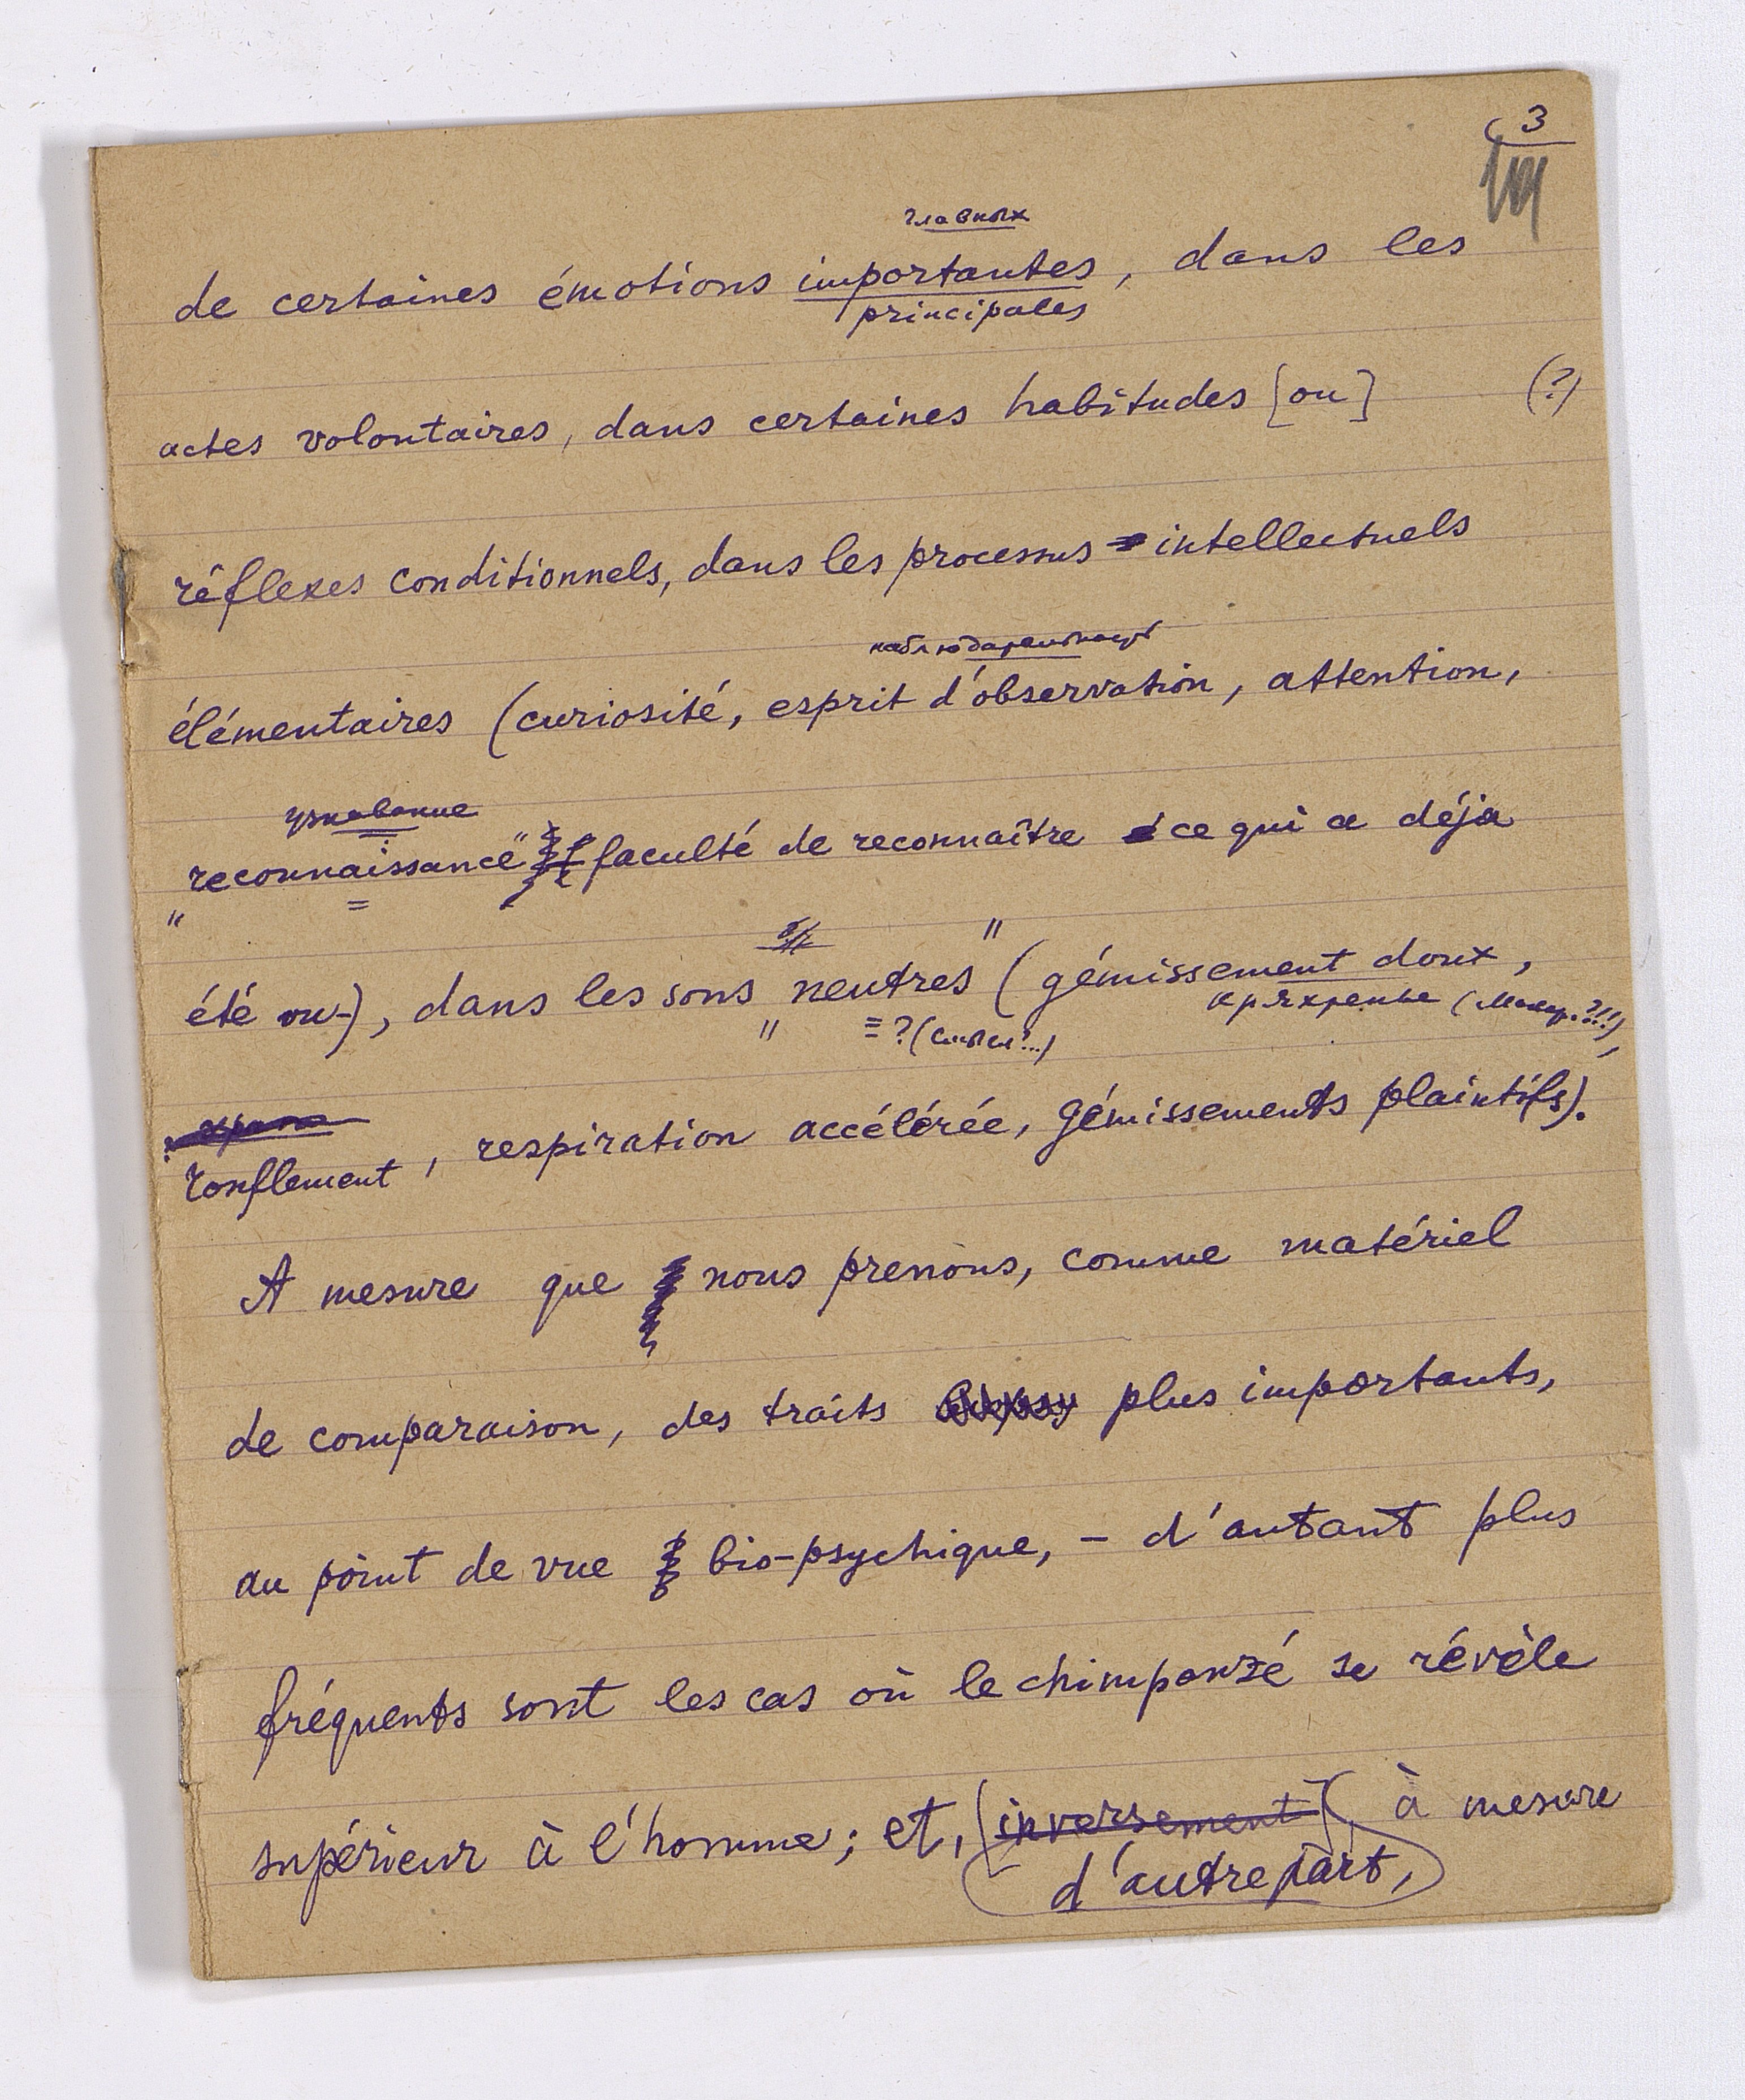 3
главных
de certaines émotions importantes, dans les
principales
actes volontaires, dans certaines habitudes [ou] (?)
réflexes conditionnels, dans les processus intellectuels
наблюдательность
élémentaires (curiosité, esprit d'observation, attention,
узнавание
"reconnaissance" faculté de reconnaître ce qui a déja
été vu), dans les sons "neutres" (gémissement doux,
= ? (
кряхтенье (
ronflement, respiration accélérée, gémissements plaintifs).
A mesure que nous prenons, comme matériel
de comparaison, des traits plus importants,
au point de vue bio-psychique, – d'autant plus
fréquents sont les cas où le chimpanzé se révèle
supérieur à l'homme; et, (inversement) à mesure
d'autre part,